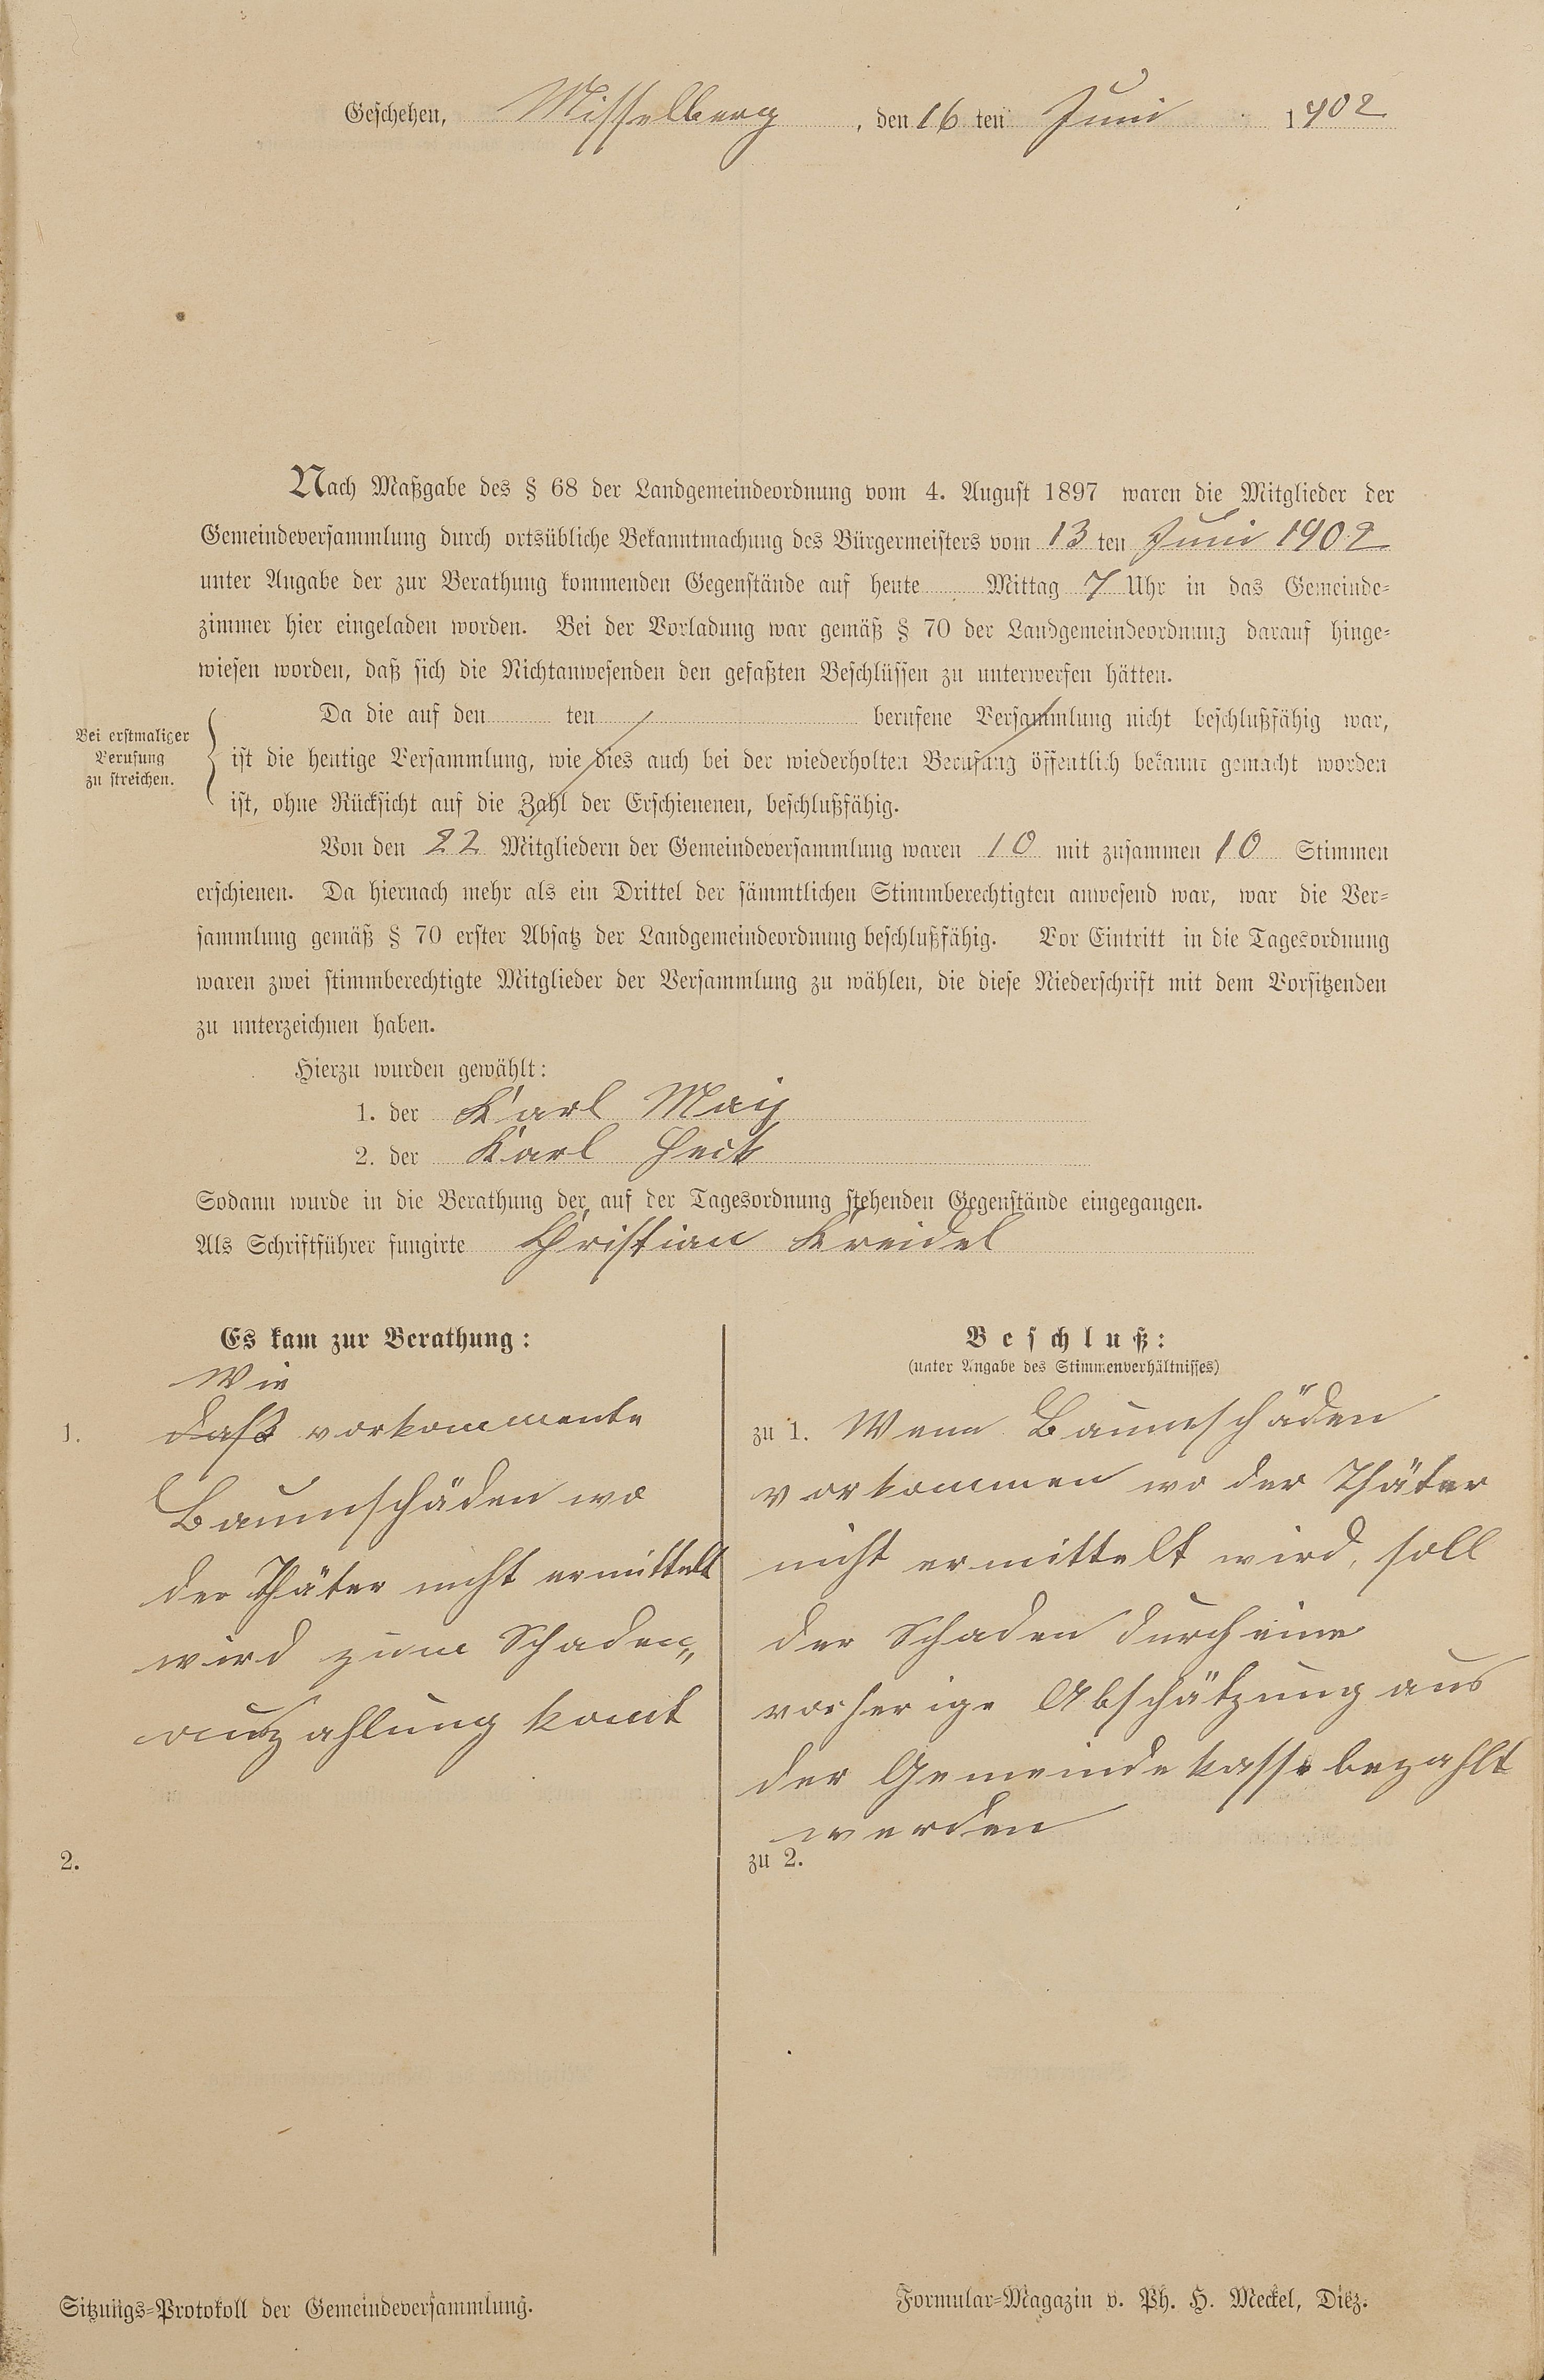 Geschehen, Misselberg, den 16 ten Juni 1902
Nach Maßgabe des § 68 der Landgemeindeordnung vom 4. August 1897 waren die Mitglieder der
Gemeindeversammlung durch ortsübliche Bekanntmachung des Bürgermeisters vom 13 ten Juni 1902
unter Angabe der zur Berathung kommenden Gegenstände auf heute Mittag 7 Uhr in das Gemeinde-
zimmer hier eingeladen worden. Bei der Vorladung war gemäß § 70 der Landgemeindeordnung darauf hinge-
wiesen worden, daß sich die Nichtanwesenden den gefaßten Beschlüssen zu unterwerfen hätten.
Bei erstmaliger
Berufung
zu streichen.
Da die auf den ten berufene Versammlung nicht beschlußfähig war,
ist die heutige Versammlung, wie dies auch bei der wiederholten Berufung öffentlich bekannt gemacht worden
ist, ohne Rücksicht auf die Zahl der Erschienenen, beschlußfähig.
Von den 22 Mitgliedern der Gemeindeversammlung waren 10 mit zusammen 10 Stimmen
erschienen. Da hiernach mehr als ein Drittel der sämmtlichen Stimmberechtigten anwesend war, war die Ver-
sammlung gemäß § 70 erster Absatz der Landgemeindeordnung beschlußfähig. Vor Eintritt in die Tagesordnung
waren zwei stimmberechtigte Mitglieder der Versammlung zu wählen, die diese Niederschrift mit dem Vorsitzenden
zu unterzeichnen haben.
Hierzu wurden gewählt:
1. der Karl May
2. der Karl
Sodann wurde in die Berathung der auf der Tagesordnung stehenden Gegenstände eingegangen.
Als Schriftführer fungirte Christian Kreidel
Es kam zur Berathung:
Wie
1. daß vorkommente
Baumschäden wo
der Thäter nicht ermittelt
wird zum Schaden„
auszahlung komt
2.
Beschluß:
(unter Angabe des Stimmenverhältnisses)
zu 1. Wenn Baumeschäden
vorkommen wo der Thäter
nicht ermittelt wird, soll
der Schaden durch eine
vorherige Abschätzung aus
der Gemeindekasse bezahlt
werden
zu 2.
Sitzungs-Protokoll der Gemeindeversammlung.
Formular-Magazin v. Ph. H. Meckel, Diez.